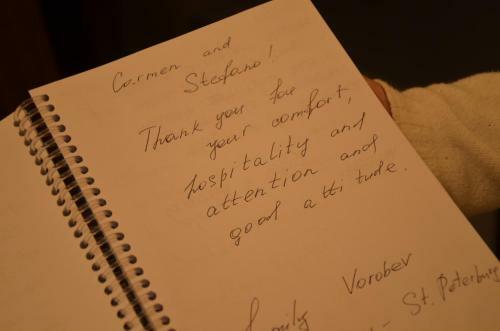 Carmen and
Stefano!
Thank you for
your comfort,
hospitality and
attention and
good attitude.
Family Vorobev
- St. Peterburg